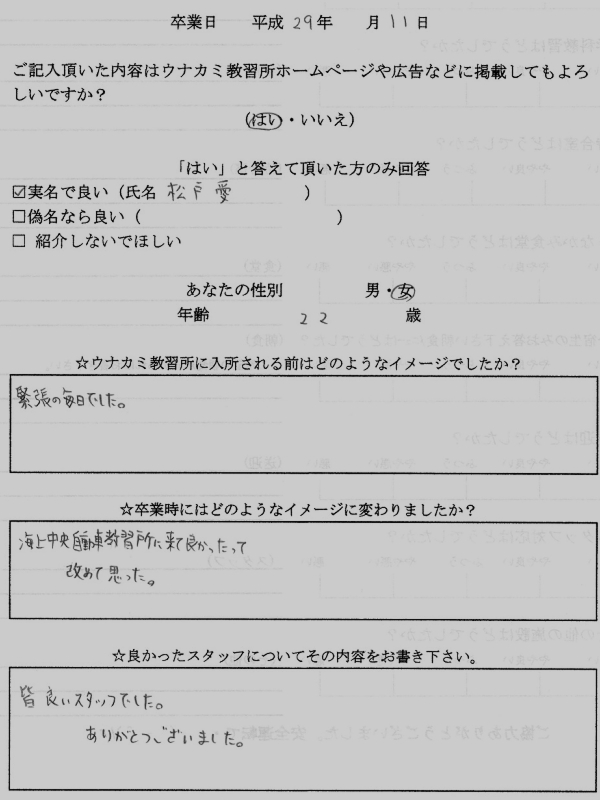 卒業日 平成 29年 月 11日
ご記入頂いた内容はウナカミ教習所ホームページや広告などに掲載してもよろ
しいですか？
（はい・いいえ）
「はい」と答えて頂いた方のみ回答
☑実名で良い（氏名 松戸 愛 ）
□偽名なら良い（ ）
□ 紹介しないでほしい
あなたの性別 男・女
年齢 22 歳
☆ウナカミ教習所に入所される前はどのようなイメージでしたか？
緊張の毎日でした。
☆卒業時にはどのようなイメージに変わりましたか？
海上中央自動車教習所に来て良かったって
改めて思った。
☆良かったスタッフについてその内容をお書き下さい。
皆良いスタッフでした。
ありがとうございました。